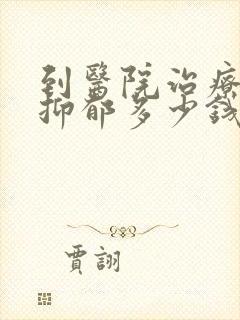 到醫院治療
抑郁多少錢
賈詡